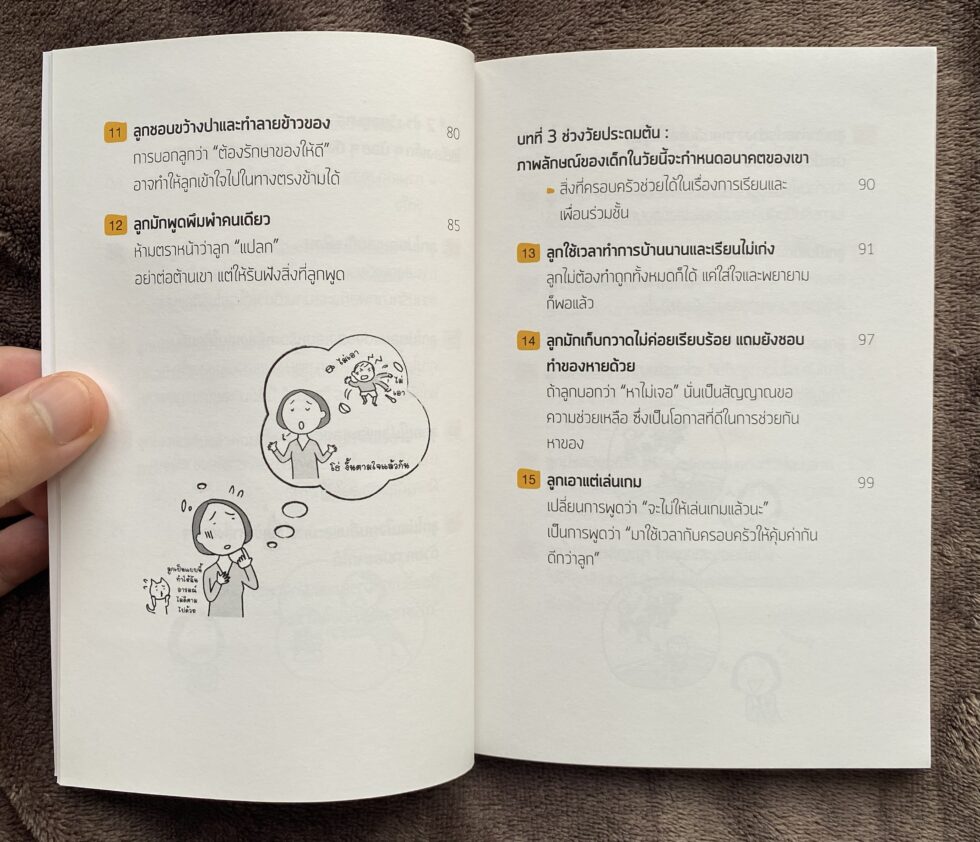 11 ลูกชอบขว้างปาและทำลายข้าวของ 80
การบอกลูกว่า “ต้องรักษาของให้ดี”
อาจทำให้ลูกเข้าใจไปในทางตรงข้ามได้
12 ลูกมักพูดพึมพำคนเดียว 85
ห้ามตราหน้าว่าลูก “แปลก”
อย่าต่อต้านเขา แต่ให้รับฟังสิ่งที่ลูกพูด
ไม่เอา
ไม่
เอา
โอ๋ งั้นตามใจแล้วกัน
ลูกเป็นแบบนี้
ทำให้ฉัน
อารมณ์
ไม่ดีตาม
ไปด้วย
บทที่ 3 ช่วงวัยประถมต้น :
ภาพลักษณ์ของเด็กในวัยนี้จะกำหนดอนาคตของเขา
สิ่งที่ครอบครัวช่วยได้ในเรื่องการเรียนและ 90
เพื่อนร่วมชั้น
13 ลูกใช้เวลาทำการบ้านนานและเรียนไม่เก่ง 91
ลูกไม่ต้องทำถูกทั้งหมดก็ได้ แค่ใส่ใจและพยายาม
ก็พอแล้ว
14 ลูกมักเก็บกวาดไม่ค่อยเรียบร้อย แถมยังชอบ 97
ทำของหายด้วย
ถ้าลูกบอกว่า “หาไม่เจอ” นั่นเป็นสัญญาณขอ
ความช่วยเหลือ ซึ่งเป็นโอกาสที่ดีในการช่วยกัน
หาของ
15 ลูกเอาแต่เล่นเกม 99
เปลี่ยนการพูดว่า “จะไม่ให้เล่นเกมแล้วนะ”
เป็นการพูดว่า “มาใช้เวลากับครอบครัวให้คุ้มค่ากัน
ดีกว่าลูก”